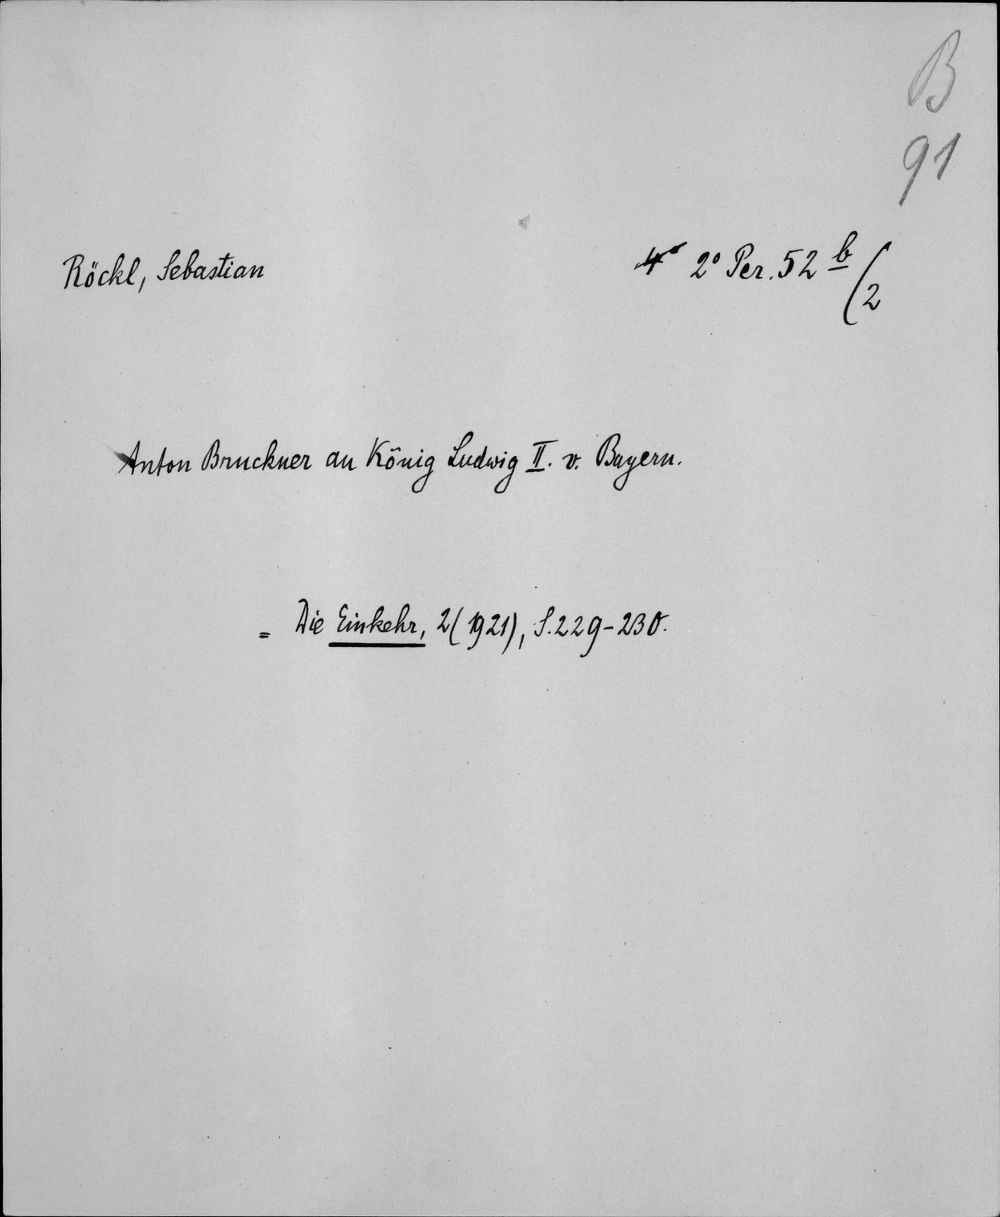 B
91
Röckl, Sebastian 2° Per. 52 b/2
Anton Bruckner an König Ludwig II. v. Bayern.
= Die Einkehr, 2(1921), S. 229-230.